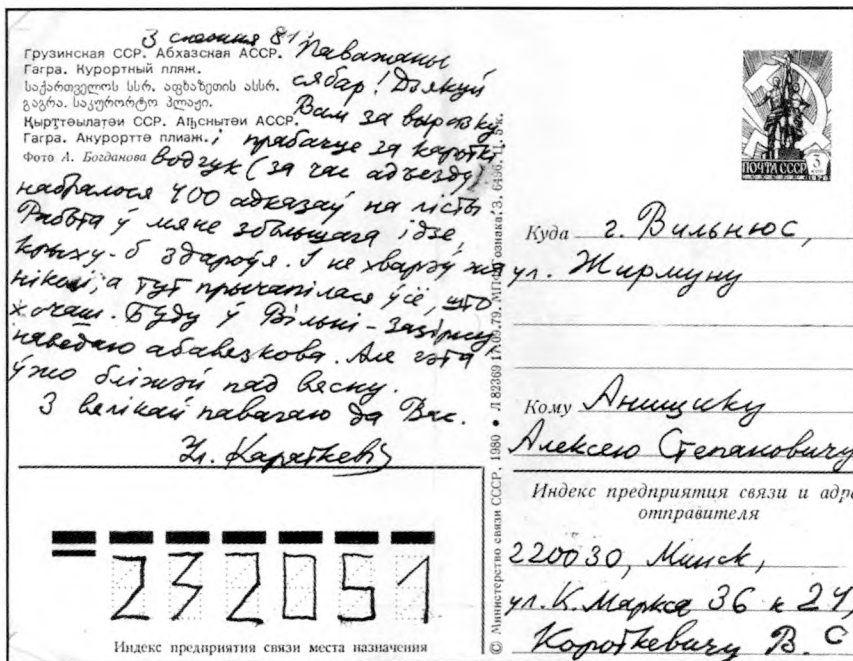 3 снежня 81 г.
Грузинская ССР. Абхазская АССР.
Гагра. Курортный пляж.
საქართველოს სსრ. აფხაზეთის ასსრ.
გაგრა. საკურორტო პლაჟი.
Қырҭтәылатәи ССР. Аԥснытәи АССР.
Гагра. Акурорттә пляж.
Фото А. Богданова
Паважаны
сябар! Дзякуй
Вам за выразку
і прабачце за кароткі
водгук (за час ад'езду
набралося 400 адказаў на лісты.
Работа ў мяне збольшага ідзе,
крыху-б здароўя. І не хварэў жа
ніколі, а тут прычапілася ўсё, што
хочаш. Буду ў Вільні - зазірну,
наведаю абавязкова. Але гэта
ўжо бліжэй пад вясну.
З вялікай павагаю да Вас.
Ул. Караткевіч
232051
Индекс предприятия связи места назначения
© Министерство связи СССР. 1980 • Л 82369 17.09.79. МПФ Гознака. З. 6496. Ц. 5 к.
ПОЧТА СССР 3 КОП
Куда г. Вильнюс,
ул. Жирмуну
Кому Анищику
Алексею Степановичу
Индекс предприятия связи и адре
отправителя
220030, Минск,
ул. К. Маркса 36 к 24,
Короткевичу В. С